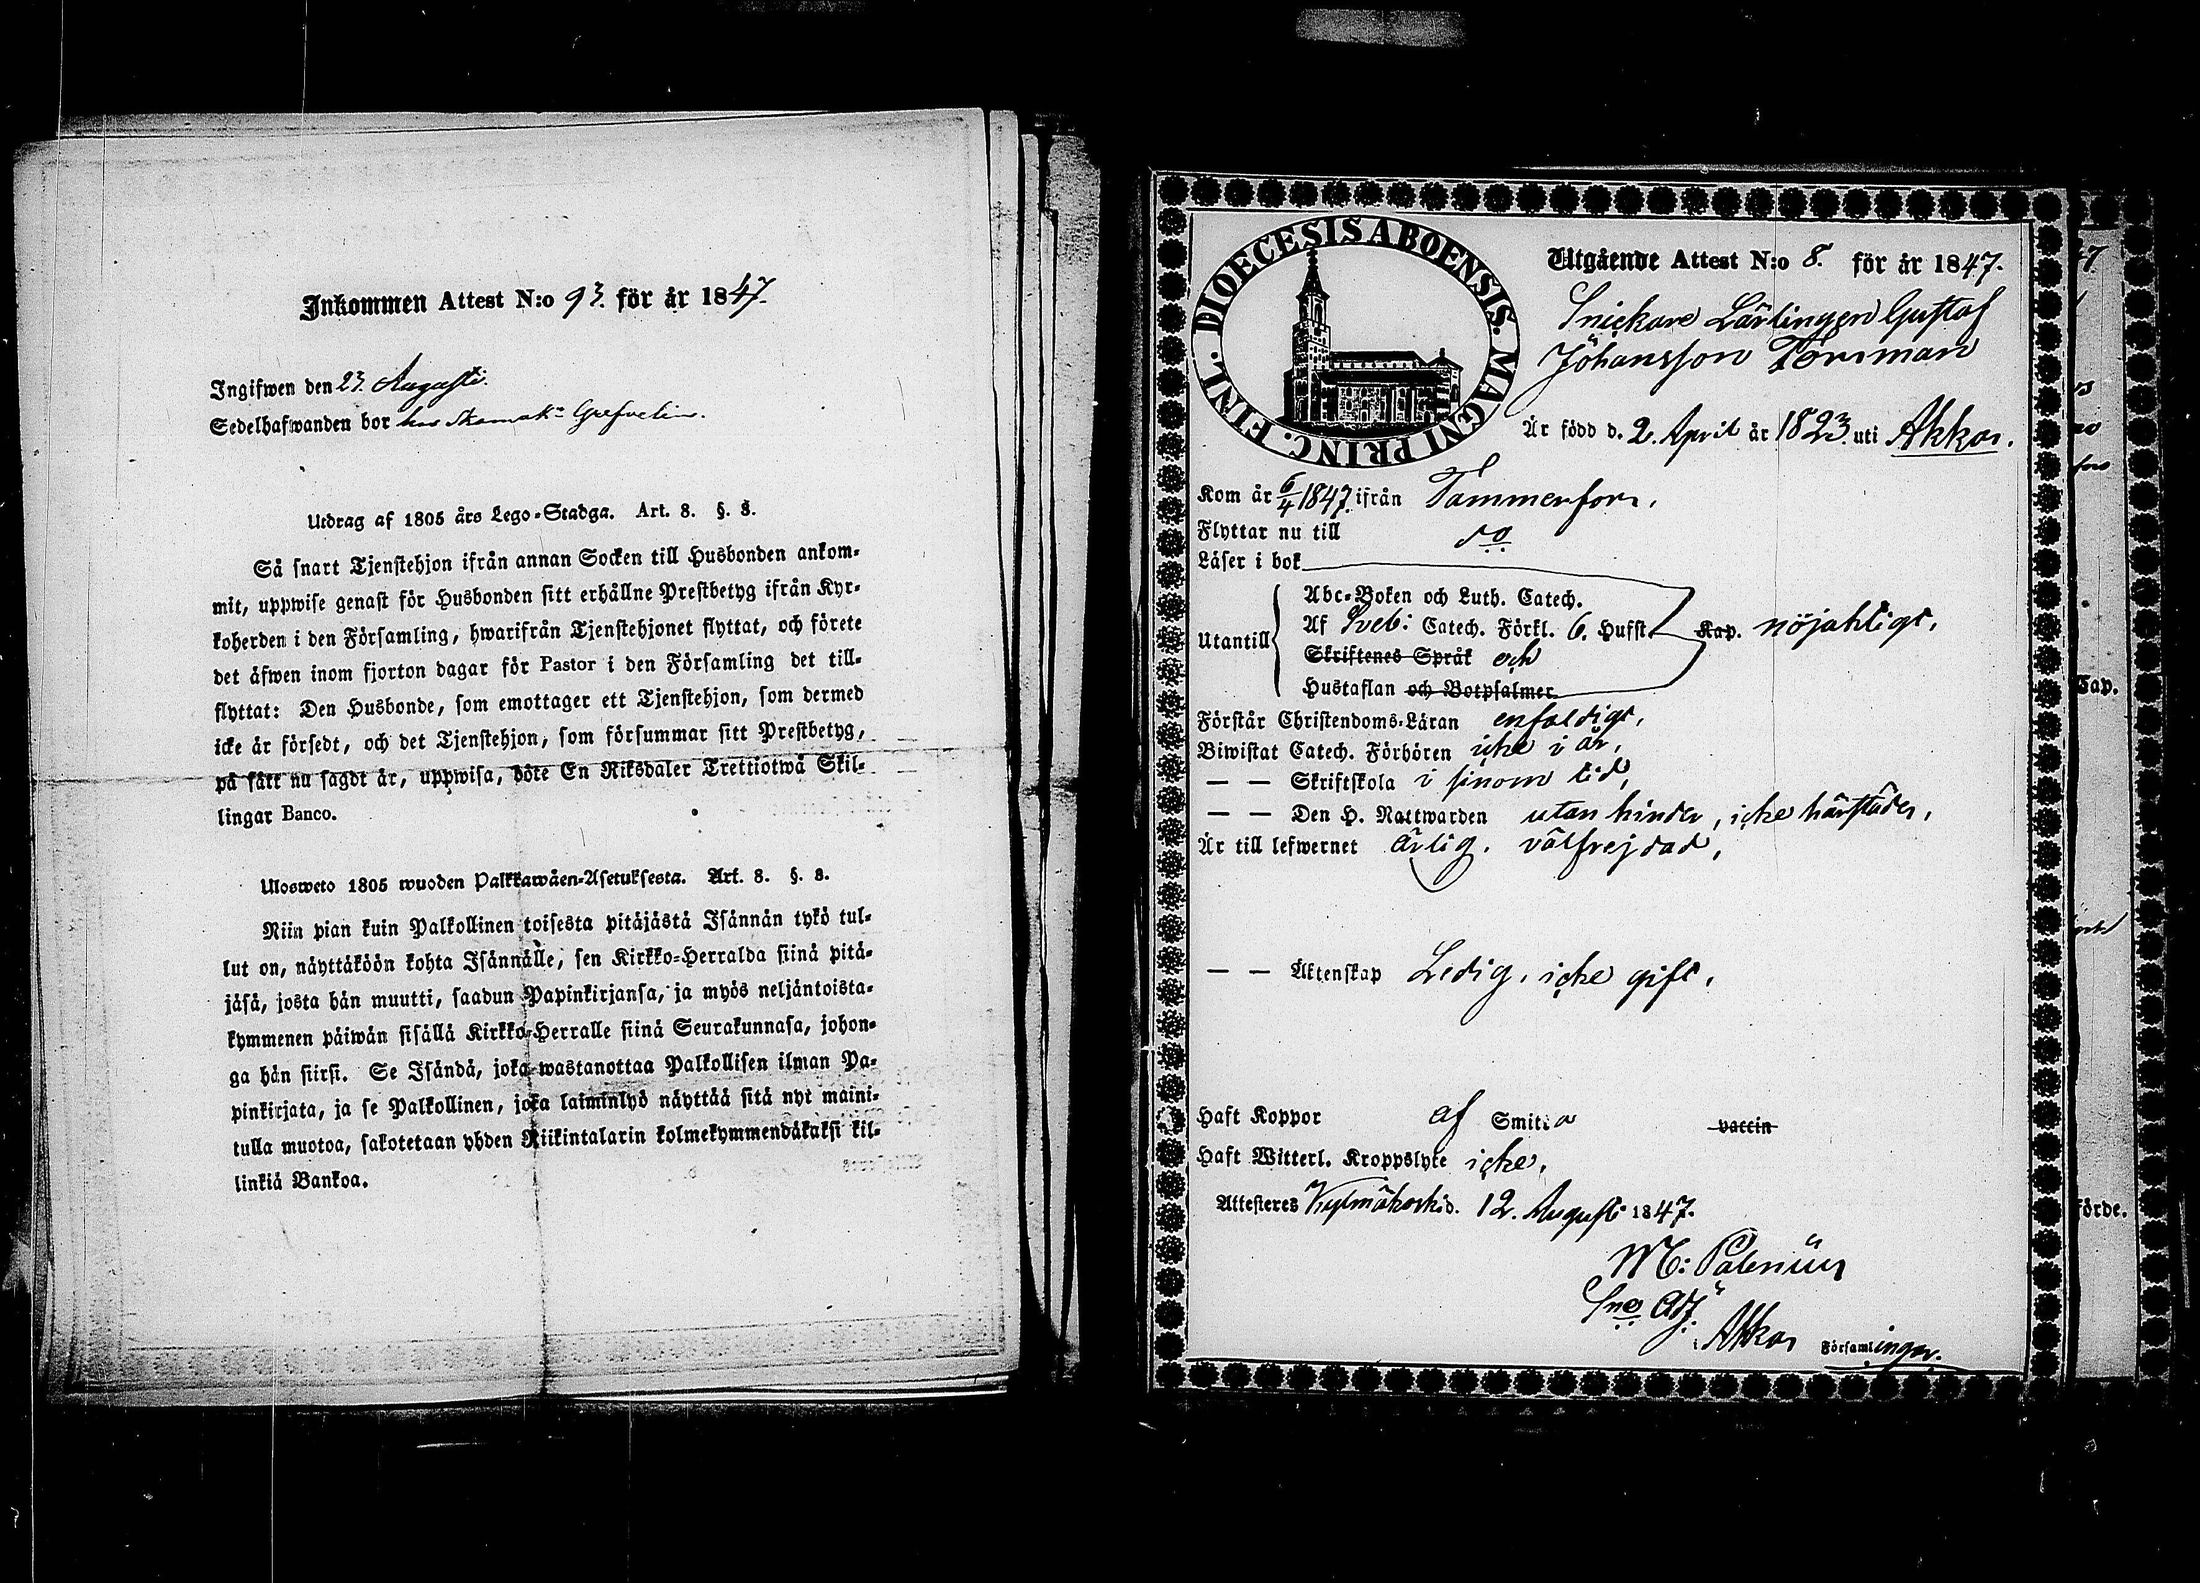 Inkommen Attest N:o 93. för år 1847.
Ingifwen den 23. Augusti.
Sedelhafwanden bor hos Skomak:n Grefvelin.
Utdrag af 1805 års Lego-Stadga. Art. 8. §. 8.
Så snart Tjenstehjon ifrån annan Socken till Husbonden ankom-
mit, uppwise genast för Husbonden sitt erhållne Prestbetyg ifrån Kyr-
koherden i den Församling, hwarifrån Tjenstehjonet flyttat, och förete
det äfwen inom fjorton dagar för Pastor i den Församling det till-
flyttat: Den Husbonde, som emottager ett Tjenstehjon, som dermed
icke är försedt, och det Tjenstehjon, som försummar sitt Prestbetyg,
på sätt nu sagdt är, uppwisa, böte En Riksdaler Trettiotwå Skil-
lingar Banco.
Ulosweto 1805 wuoden Palkkawäen-Asetuksesta. Art. 8. §. 8.
Niin pian kuin Palkollinen toisesta pitäjästä Isännän tykö tul-
lut on, näyttäköön kohta Isännälle, sen Kirkko-Herralda siinä pitä-
jäsä, josta hän muutti, saadun Papinkirjansa, ja myös neljäntoista-
kymmenen päiwän sisällä Kirkko-Herralle siinä Seurakunnasa, johon-
ga hän siirsi. Se Isändä, joka wastanottaa Palkollisen ilman Pa-
pinkirjata, ja se Palkollinen, joka laiminlyö näyttää sitä nyt maini-
tulla muotoa, sakotetaan yhden Riikintalarin kolmekymmendäkaksi kil-
linkiä Bankoa.
DIOECESIS ABOENSIS. MAGNI PRINC. FINL.
Utgående Attest N:o 8. för år 1847.
Snickare Lärlingen Gustaf
Johansson Törnman
Är född d. 2. April år 1823 uti Akkas.
Kom år 6/4 1847. ifrån Tammerfors,
Flyttar nu till do
Läser i bok
Abc-Boken och Luth. Catech.
Utantill Af Sveb: Catech. Förkl. 6. Hufst. Kap. nöjaktigt,
Skriftenes Språk och
Hustaflan och Botpsalmer
Förstår Christendoms-Läran enfaldigt,
Biwistat Catech. Förhören icke i år,
— — Skriftskola i sinom tid,
— — Den H. Nattwarden utan hinder, icke härstädes,
Är till lefwernet ärlig, välfrejdad,
— — Äktenskap Ledig, icke gift,
Haft Koppor af Smitta vaccin
Haft Witterl. Kroppslyte icke,
Attesteras Kylmäkoski d. 12. Augusti 1847.
M: Palenius
Sne Adj.
i Akkas Församlingar.
47
Cap.
förde.